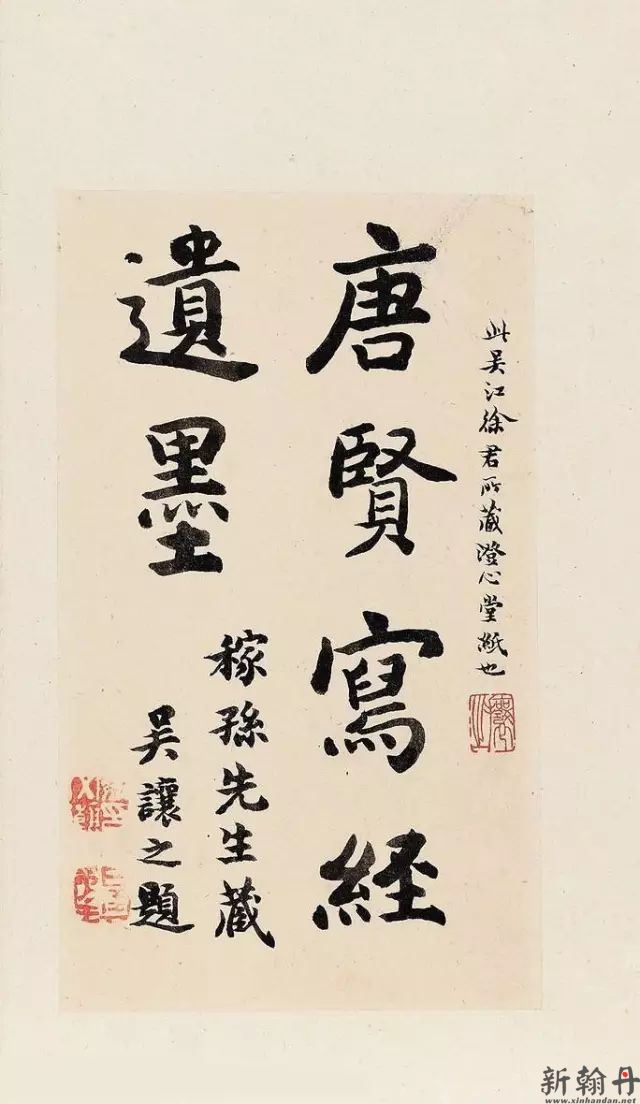 此吴江徐君所藏澄心堂紙也
唐賢寫経
遺墨
稼孫先生藏
吴讓之題
新翰丹
www.xinhandan.net